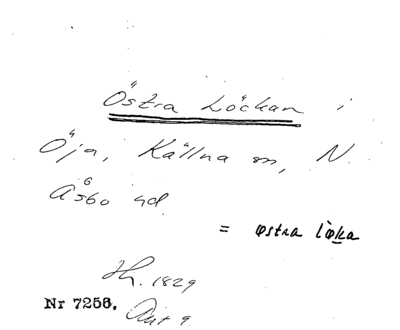 Östra Löckan i
Öja, Källna sn, N.
Åsbo hd
= østra løka
Jh. 1829
Nr 7256. Akt 9.